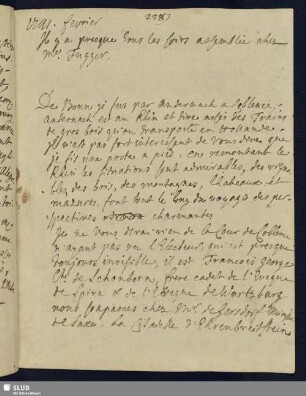 1741. fevrier
Il y a presque tous les soirs assemblée chez
Mr. Fugger.
De Bonn je fus par Andernach a Coblence,
Andernach est au Rhin et tire assés des Trains
de gros bois qu'on transporte en Hollande.
Il n'est pas fort interessant de vous dire que
je fis une postes a pied. en remontant le
Rhin les situations sont admirables, des vignobles
des bois, des montagnes, Chateaux et
masures. font tout le long du voyage des per-
spectives charmantes
Je ne vous dirai rien de la Cour de Coblence
n'ayant pas vu l'Electeur, qui est presque
toujours invisible, il est François George
Ch. de Schönborn, frere cadet de l'Eveque
de Spire & de l'Evesque de Wurtzburg
nous soupames chez Mr. de Gersdorf Ministre
de Saxe. La Citadelle d'Ehrenbreitstein
SLUB